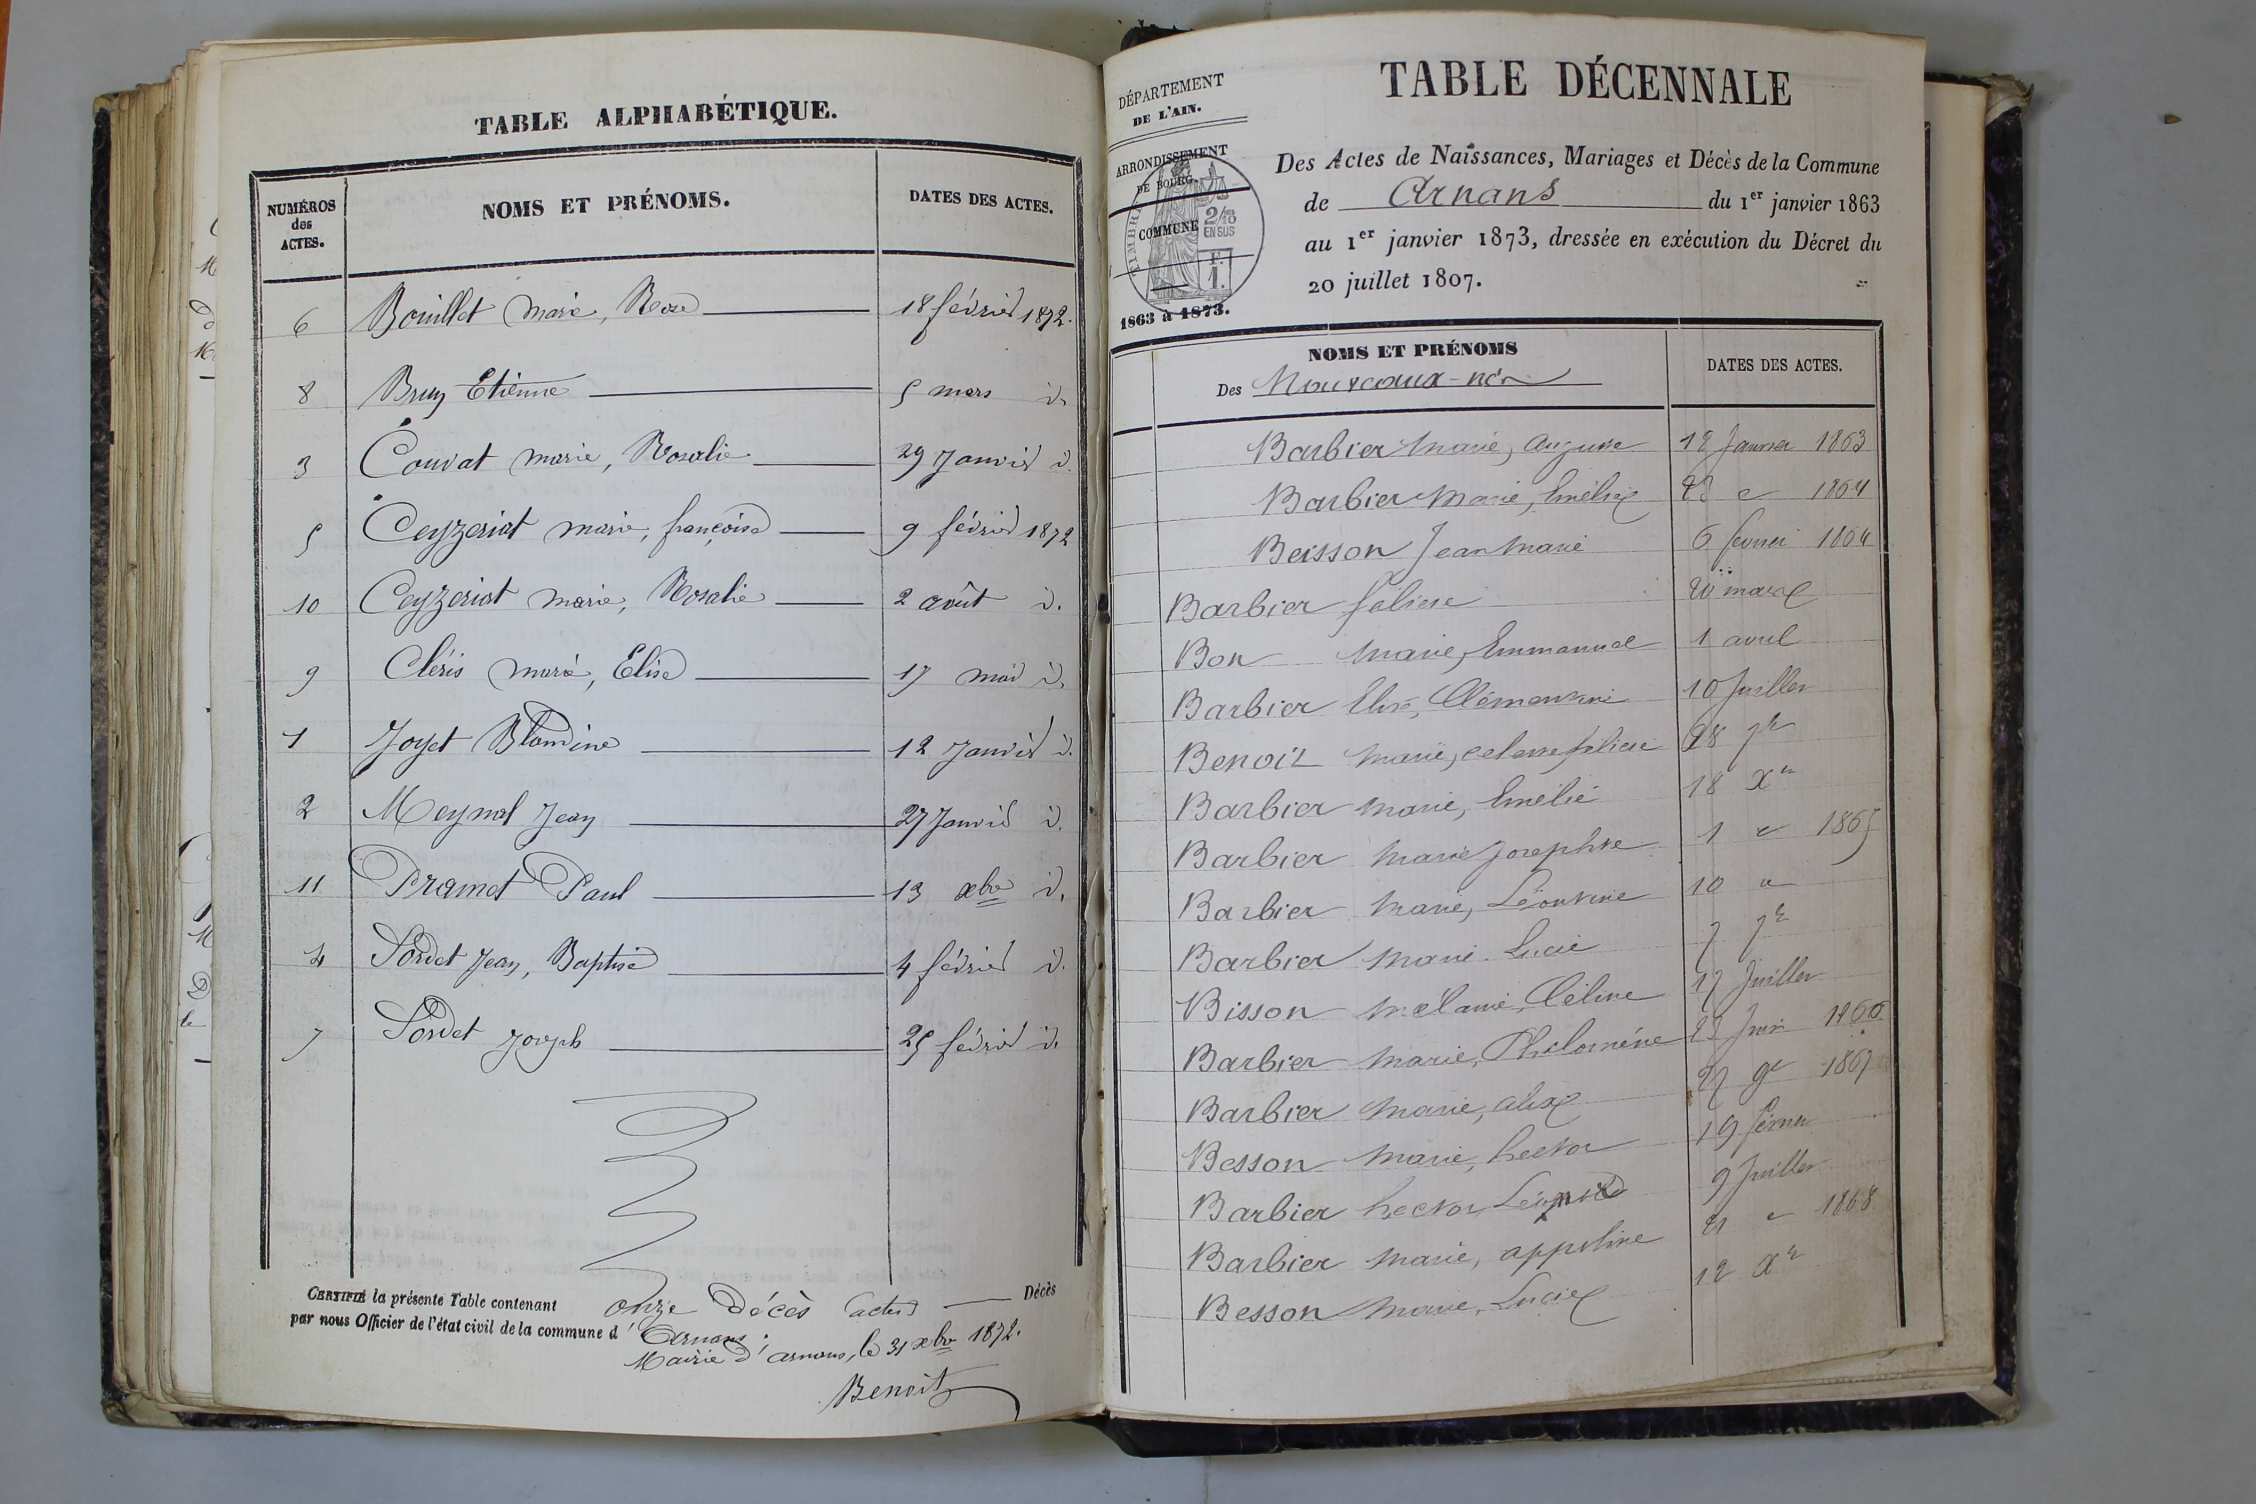 TABLE ALPHABÉTIQUE.
NUMÉROS des ACTES. NOMS ET PRÉNOMS. DATES DES ACTES.
6 Bouillet marie, Rose 18 février 1872.
8 Bruy Etienne 5 mars id.
3 Couvat marie, Rosalie 29 Janvier id.
5 Ceyzeriat marie, françoise 9 février 1872
10 Ceyzeriat marie, Rosalie 2 août id.
9 Cléris marie, Elise 17 mai id.
1 Joyet Blandine 12 Janvier id.
2 Meynal Jean 27 Janvier id.
11 Pramet Paul 13 xbre id.
4 Sordet Jean, Baptiste 4 février id.
7 Sordet Joseph 25 février id.
CERTIFIÉ la présente Table contenant onze décès actes Décès
par nous Officier de l'état civil de la commune d' Arnans.
Mairie d'arnans, le 31 xbre 1872.
Benoit
DÉPARTEMENT
DE L'AIN.
ARRONDISSEMENT
DE BOURG.
COMMUNE
2/10
EN SUS
F.
1.
1863 à 1873.
TABLE DÉCENNALE
Des Actes de Naissances, Mariages et Décès de la Commune
de Arnans du 1er janvier 1863
au 1er janvier 1873, dressée en exécution du Décret du
20 juillet 1807.
NOMS ET PRÉNOMS DATES DES ACTES.
Des Nouveaux-nés
Barbier Marie, 12 Janvier 1863
Barbier Marie, Emélie 23 " 1864
Beisson Jean Marie 6 fevrier 1864
Barbier félicie 20 mars
Bon Marie, Emmanuel 1 avril
Barbier Elise, Clémentine 10 Juillet
Benoit Marie, félicie 28 7re
Barbier Marie, Emélie 18 Xre
Barbier Marie Josephte 1 " 1865
Barbier Marie, Léontine 10 "
Barbier Marie Lucie 7 7re
Bisson Mélanie, Céline 17 Juillet
Barbier Marie, Philomène 23 Juin 1866
Barbier Marie, alix 27 9re 1867
Besson Marie, hector 19 février
Barbier hector 9 Juillet
Barbier Marie, appoline 21 " 1868
Besson Marie, Lucie 12 Xre